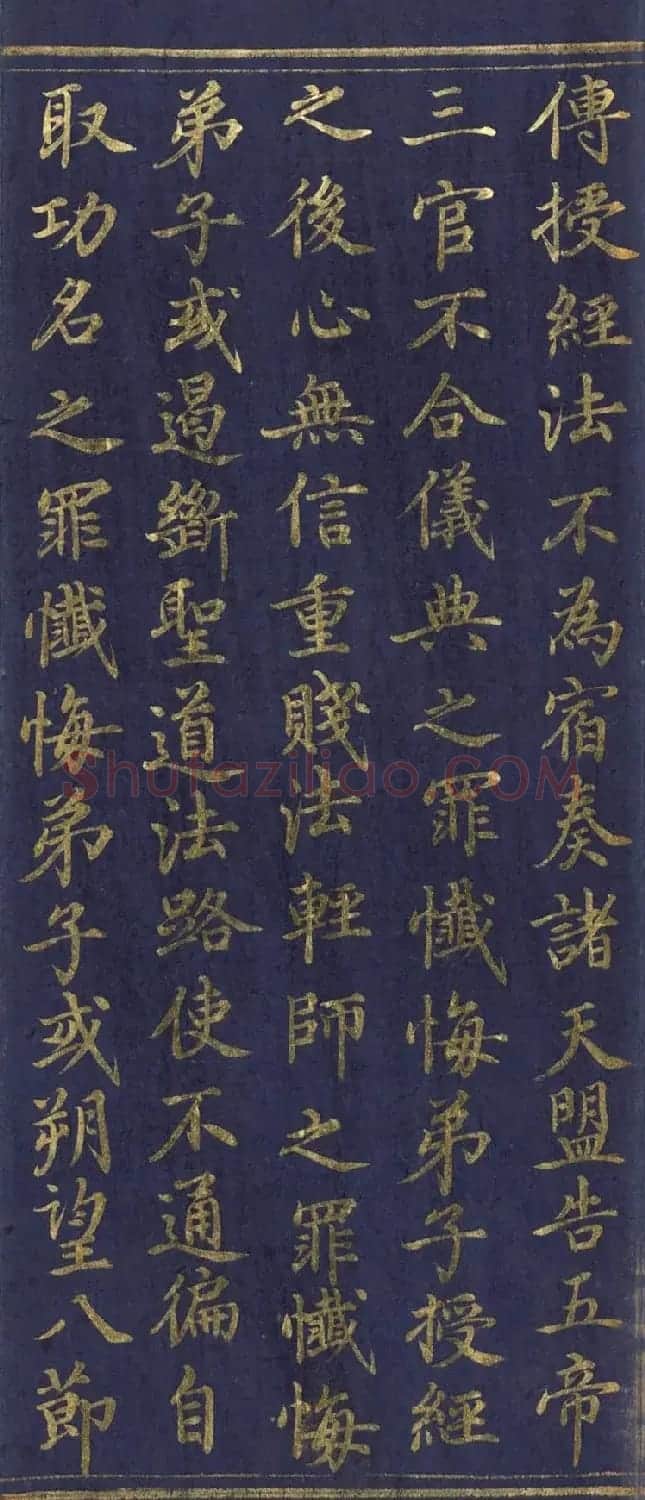 傳授經法不為宿奏諸天盟告五帝
三官不合儀典之罪懺悔弟子授經
之後心無信重賤法輕師之罪懺悔
弟子或遏斷聖道法路使不通偏自
取功名之罪懺悔弟子或朔望八節
Shufaziliao.COM